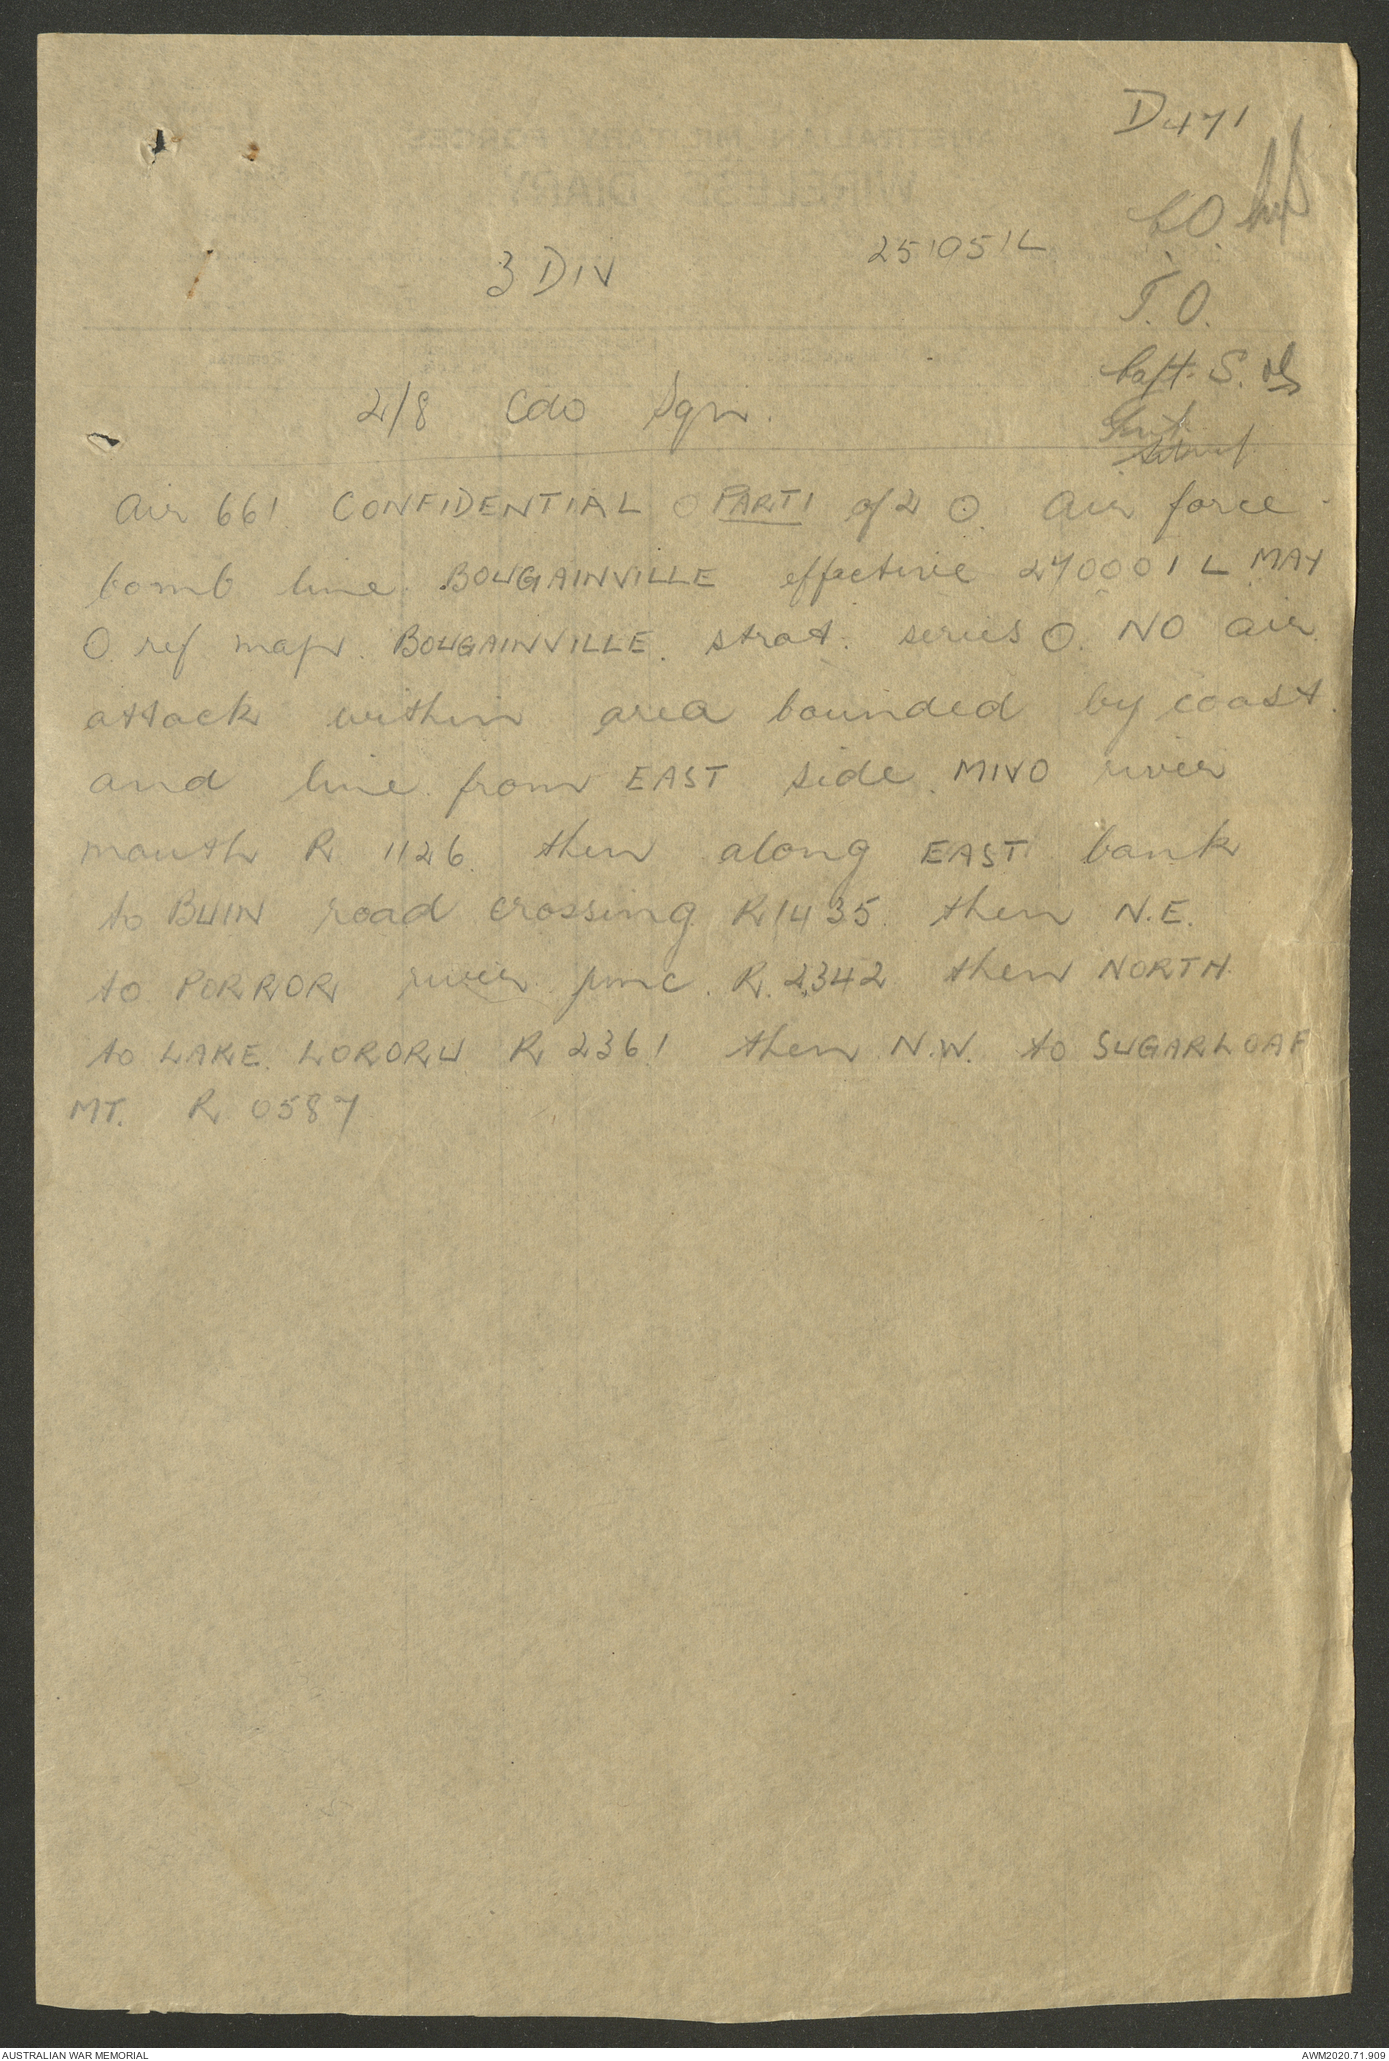 D471
C.O.
3 DIV
251051L
I.O.
Capt. S.
2/8 Cdo Sqn.
Air 661 CONFIDENTIAL O PART 1 of 2 O. Air force
bomb line BOUGAINVILLE effective 270001L MAY
O ref map BOUGAINVILLE strat. series O. NO air
attack within area bounded by coast
and line from EAST side MIVO river
mouth R 1126 then along EAST bank
to BUIN road crossing R1435 then N.E.
to PORROR river junc. R.2342 then NORTH
to LAKE LORORU R 2361 then N.W. to SUGARLOAF
MT. R 0587
AUSTRALIAN WAR MEMORIAL
AWM2020.71.909